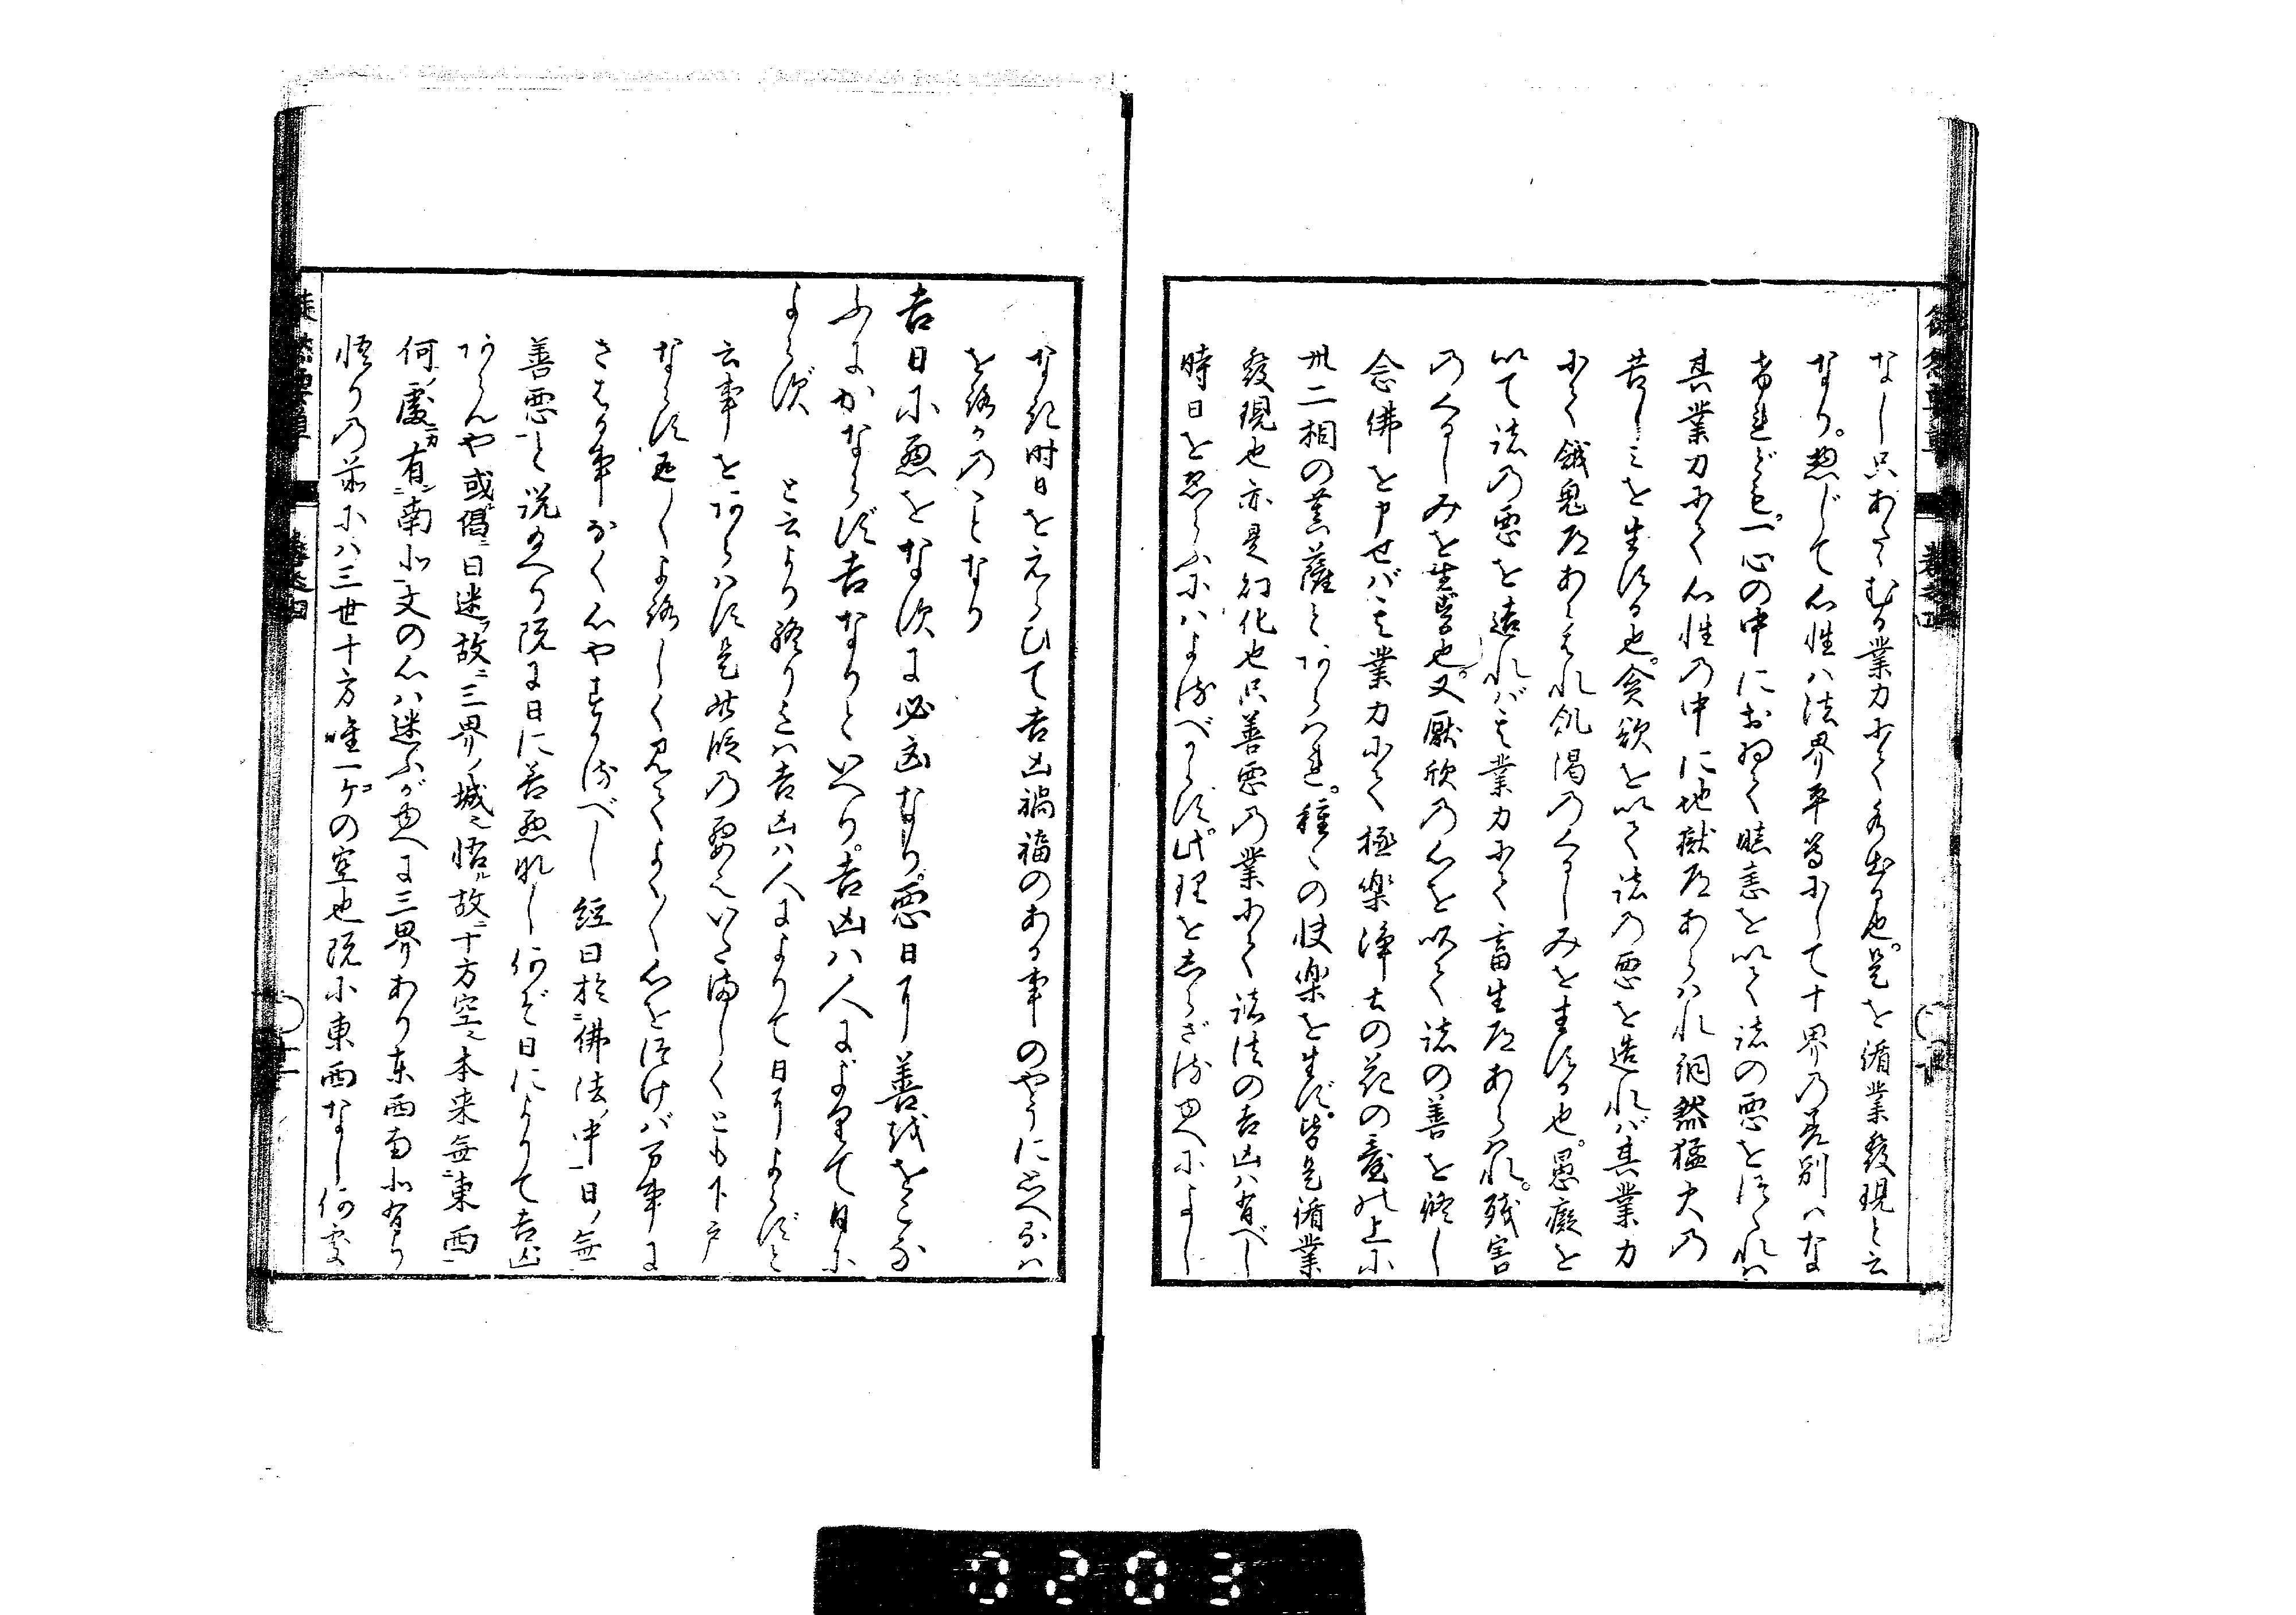 なし只あたむる業力にて各出る也是を循業發現と云
なり。惣じて心性ハ法界平等にして十界の差別ハな
けれども。一心の中におゐて瞋恚を以て諸の悪を作れハ
其業力にて心性の中に地獄道あらハれ洞然猛火の
苦しミを生ずる也。貪欲を以て諸の悪を造れバ其業力
にて餓鬼道あらはれ飢渇のくるしみを生ずる也。愚癡を
以て諸の悪を造れバ其業力にて畜生道あらはれ。残害
のくるしみを生ずる也。又厭欣の心を以て諸の善を修し
念佛を申せバ其業力にて極楽浄土の花の臺の上に
卅二相の菩薩とあらハれ。種々の快楽を生ず。皆是循業
發現也亦是幻化也只善悪の業にて諸法の吉凶ハ有べし
時日を忌らふにハよるべからず。此理をしらざるゆへによし
なき時日をえらひて吉凶禍福のある事のやうに思へるハ
をろかのことなり
吉日に悪をなすに必凶なり。悪日に善をおこな
ふにかならず吉なりといへり。吉凶ハ人によりて日に
よらず と云より終りまハ吉凶ハ人によりて日によらずと
云事をあらハす是此段の要也いたましくとも下戸
ならず返しくよろしく見てよくよく心を付けバ万事に
さはる事なく心やすかるべし 經曰於佛法中日無
善悪と説給へり既に日に善悪なし何ぞ日によりて吉凶
あらんや或偈曰迷故三界城悟故十方空本来無東西
何處有南北文の心ハ迷ふがゆへに三界あり東西南北有り
悟りの前にハ三世十方唯一ケの空也既に東西なし何處
巻之四
0203